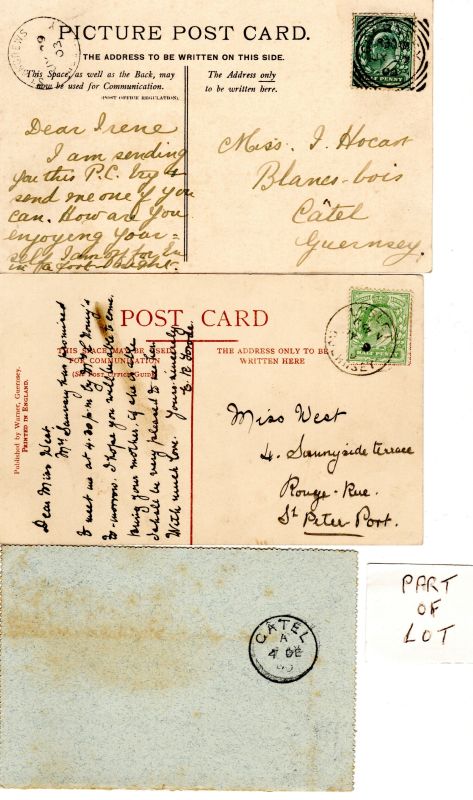 PICTURE POST CARD.
THE ADDRESS TO BE WRITTEN ON THIS SIDE.
This Space, as well as the Back, may
now be used for Communication.
(POST OFFICE REGULATION).
The Address only
to be written here.
HALF PENNY
Dear Irene
I am sending
you this P.C. try &
send me one if you
can. How are you
enjoying your-
self I am off for
in a fort-
Miss. I. Hocart
Blancs-bois
Câtel
Guernsey.
POST CARD
THIS SPACE MAY BE USED
FOR COMMUNICATION
(SEE POST OFFICE GUIDE)
THE ADDRESS ONLY TO BE
WRITTEN HERE
HALF PENNY
Published by Warner, Guernsey.
PRINTED IN ENGLAND.
Dear Miss West.
Mrs has promised
to meet us at 4.30 p.m. by Mrs
to-morrow. I hope you will be able to come.
Bring your mother, if she is able
I shall be very pleased to see her.
With much love. Yours sincerely
Miss West
4. Sunnyside terrace
Rouge-Rue.
St Peter-Port.
CÂTEL
A
4 DE
PART
OF
LOT